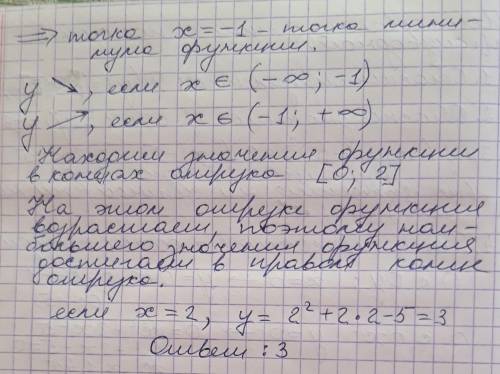 ⇒ точка x = -1 - точка мини-
мума функции.
y ↘, если x ∈ (-∞; -1)
y ↗, если x ∈ (-1; +∞)
Находим значения функции
в концах отрезка [0; 2]
На этом отрезке функция
возрастает, поэтому наи-
большего значения функция
достигает в правом конце
отрезка.
если x = 2, y = 2² + 2·2 - 5 = 3
Ответ: 3